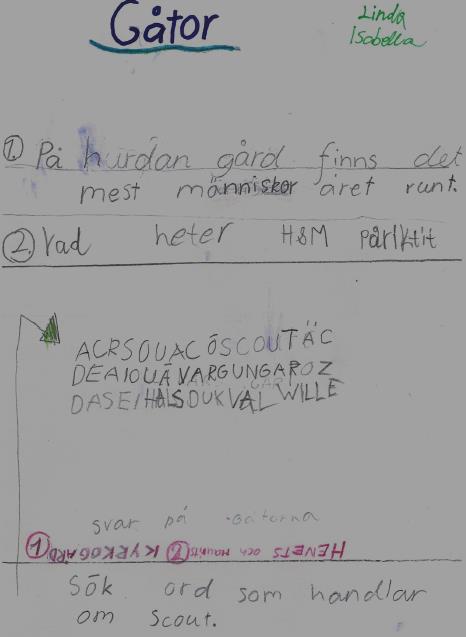 Gåtor
Linda
Isabella
1. På hurdan gård finns det
mest människor året runt.
2. Vad heter H&M på riktit
ACRSOUACÖSCOUTÄC
DEAIOUÅVARGUNGAROZ
DASEIHALSDUKVALWILLE
svar på gåtorna
1 KYRKOGÅRD 2 HENETS och MAURITS
Sök ord som handlar
om scout.